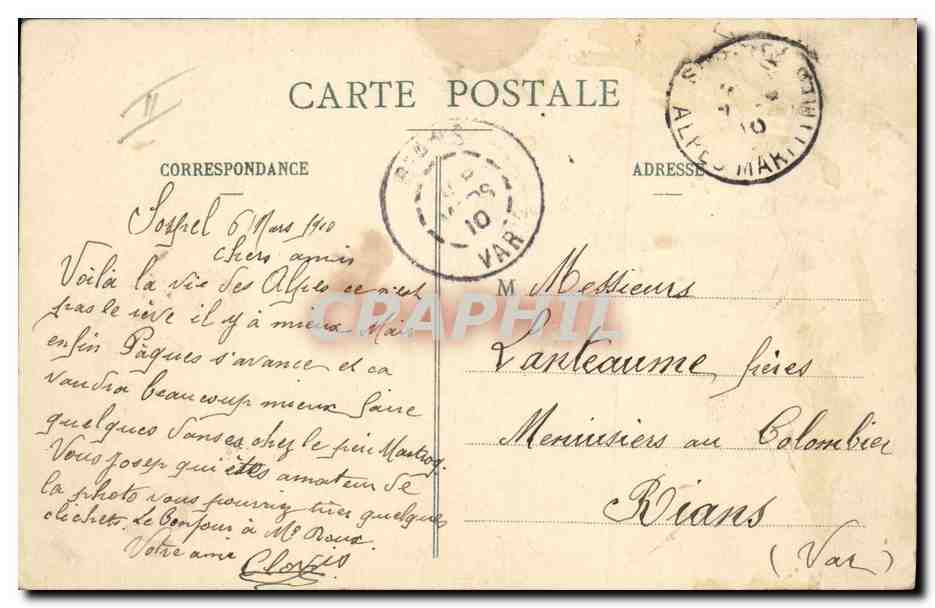 CARTE POSTALE
CORRESPONDANCE
ADRESSE
RIANS
MARS
10
VAR
10
ALPES MARITIMES
Sospel 6 Mars 1910
Chers amis
Voilà la vie des Alpes ce n'est
pas le rêve il y à mieux Mais
enfin Pâques s'avance et ca
vaudra beaucoup mieux faire
quelques danses chez le père
Vous Josep qui êtes amateur de
la photo vous pourriez tirer quelques
clichets. Le bonjour à Mr Roux
Votre ami
Clovis
M Messieurs
Lanteaume frères
Menuisiers au Colombier
Rians
(Var)
CRAPHIL